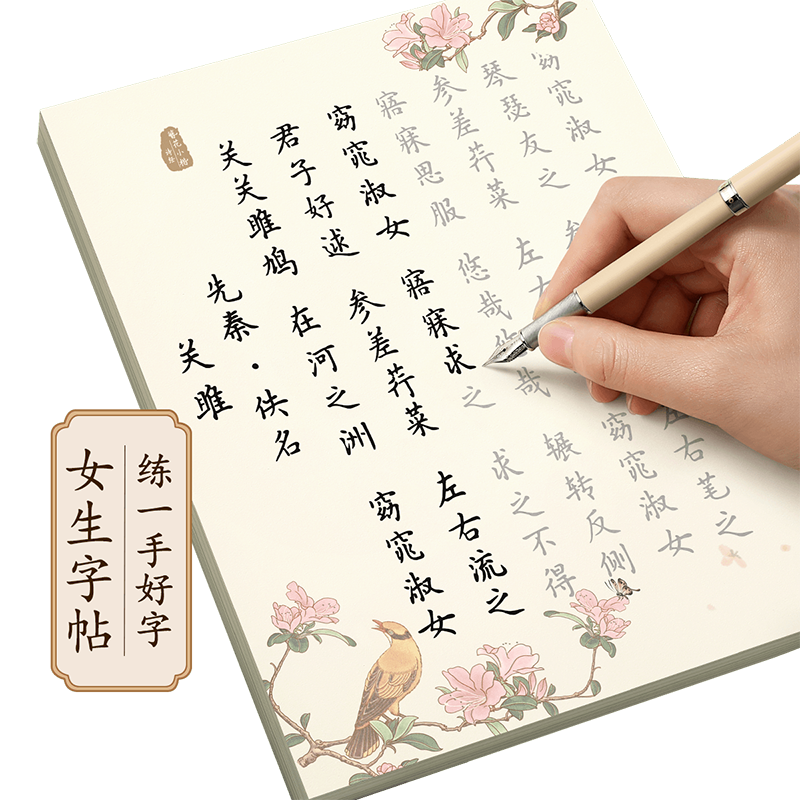 关雎
先秦·佚名
关关雎鸠 在河之洲 窈窕淑女
君子好逑 参差荇菜 左右流之
窈窕淑女 寤寐求之 求之不得
寤寐思服 悠哉悠哉 辗转反侧
参差荇菜 左右 窈窕淑女
琴瑟友之 参 左右笔之
窈窕淑女
练一手好字
女生字帖